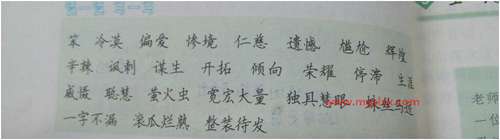 笨 冷漠 偏爱 惨境 仁慈 遗憾 尴尬 辉煌
辛辣 讽刺 谋生 开拓 倾向 荣耀 停滞 生涯
威慑 聪慧 萤火虫 宽宏大量 独具慧眼 蛛丝马迹
一字不漏 滚瓜烂熟 整装待发
老师
一位